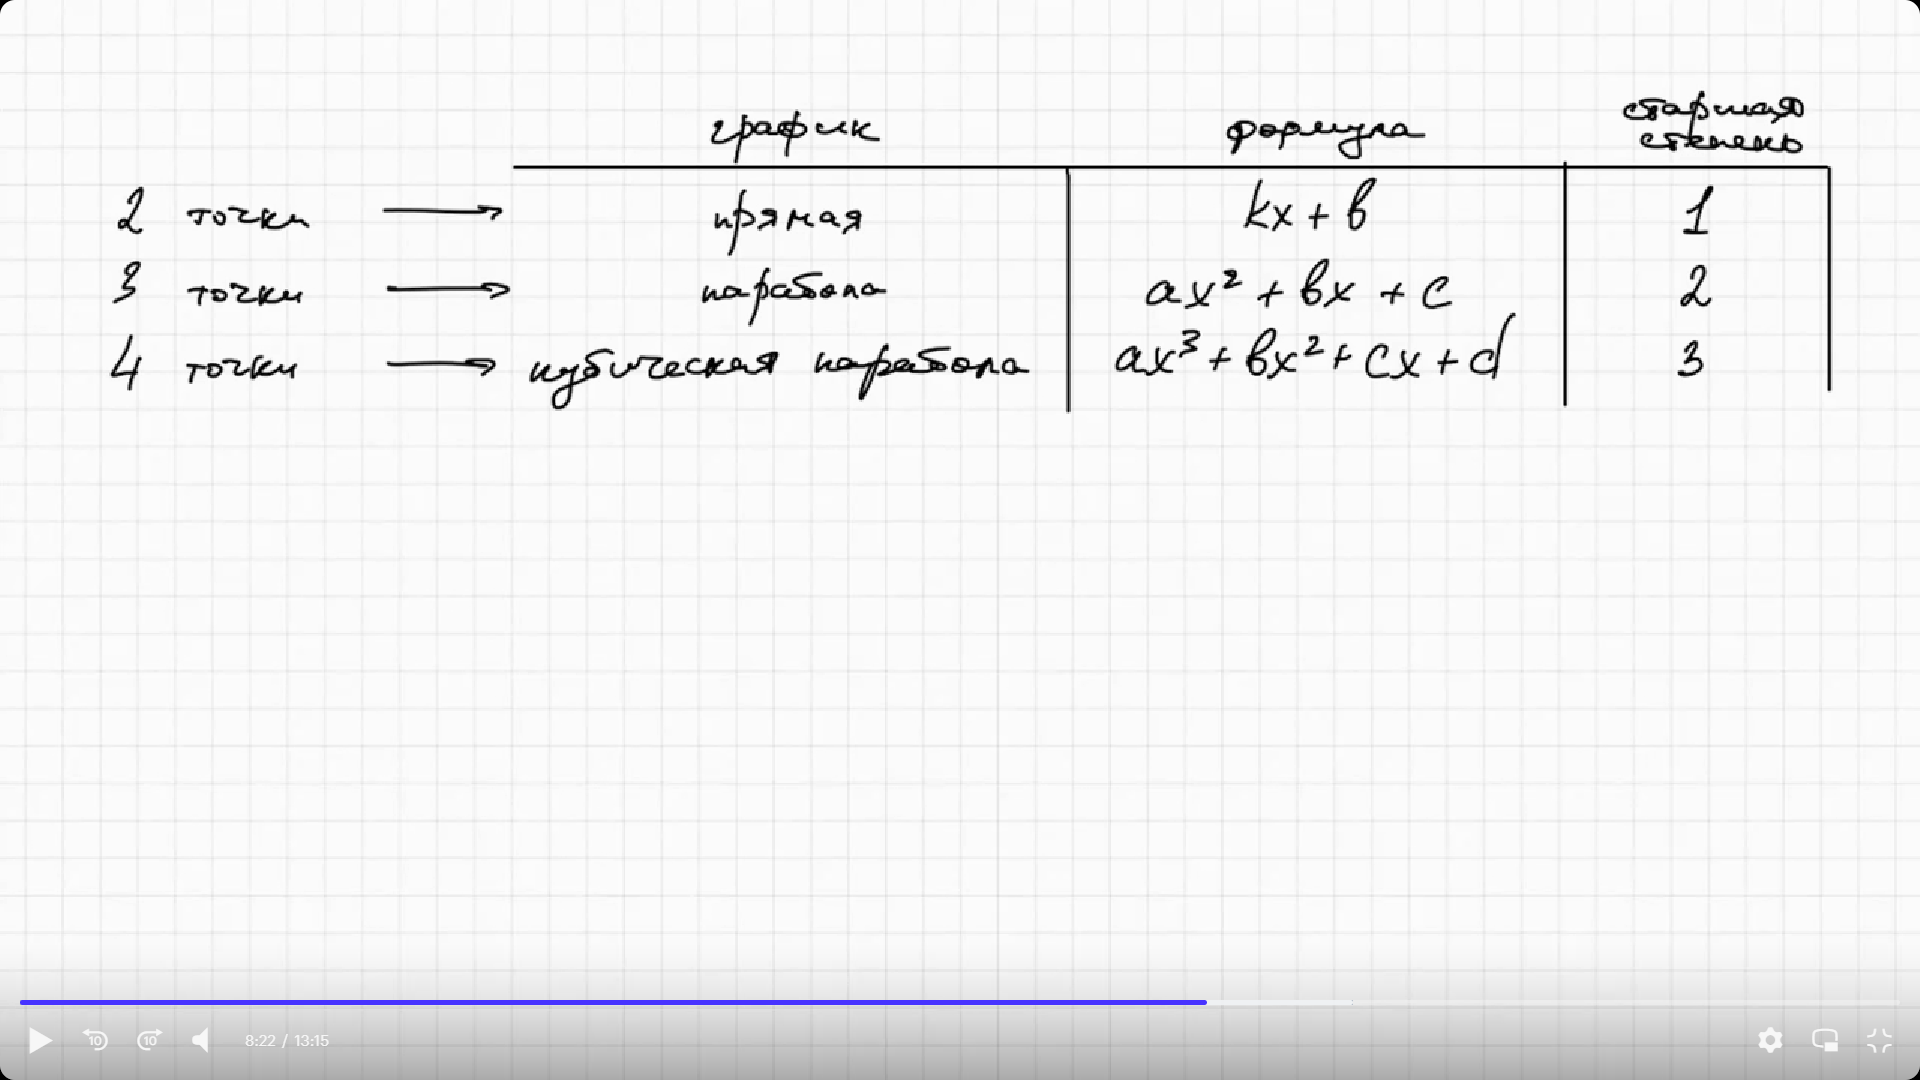 график формула старшая степень
2 точки → прямая kx + b 1
3 точки → парабола ax² + bx + c 2
4 точки → кубическая парабола ax³ + bx² + cx + d 3
10 10 8:22 / 13:15